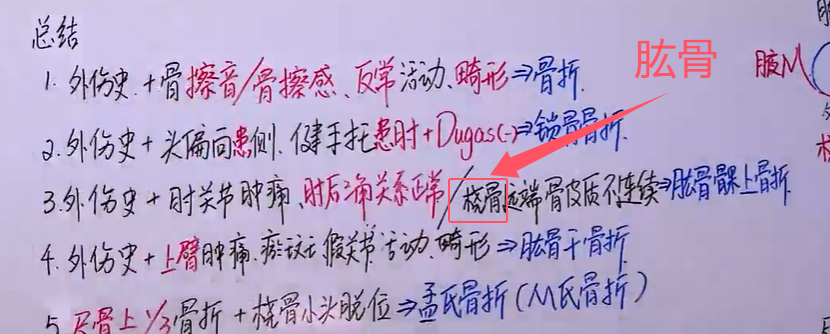 总结
肱骨
1. 外伤史 + 骨擦音/骨擦感、反常活动、畸形⇒骨折.
腋M
2. 外伤史 + 头偏向患侧、健手托患肘 + Dugas(-)⇒锁骨骨折.
3. 外伤史 + 肘关节肿痛、肘后三角关系正常/桡骨远端骨皮质不连续⇒肱骨髁上骨折
4. 外伤史 + 上臂肿痛、瘀斑 假关节活动、畸形⇒肱骨干骨折.
5 尺骨上1/3骨折 + 桡骨小头脱位⇒孟氏骨折(M氏骨折)